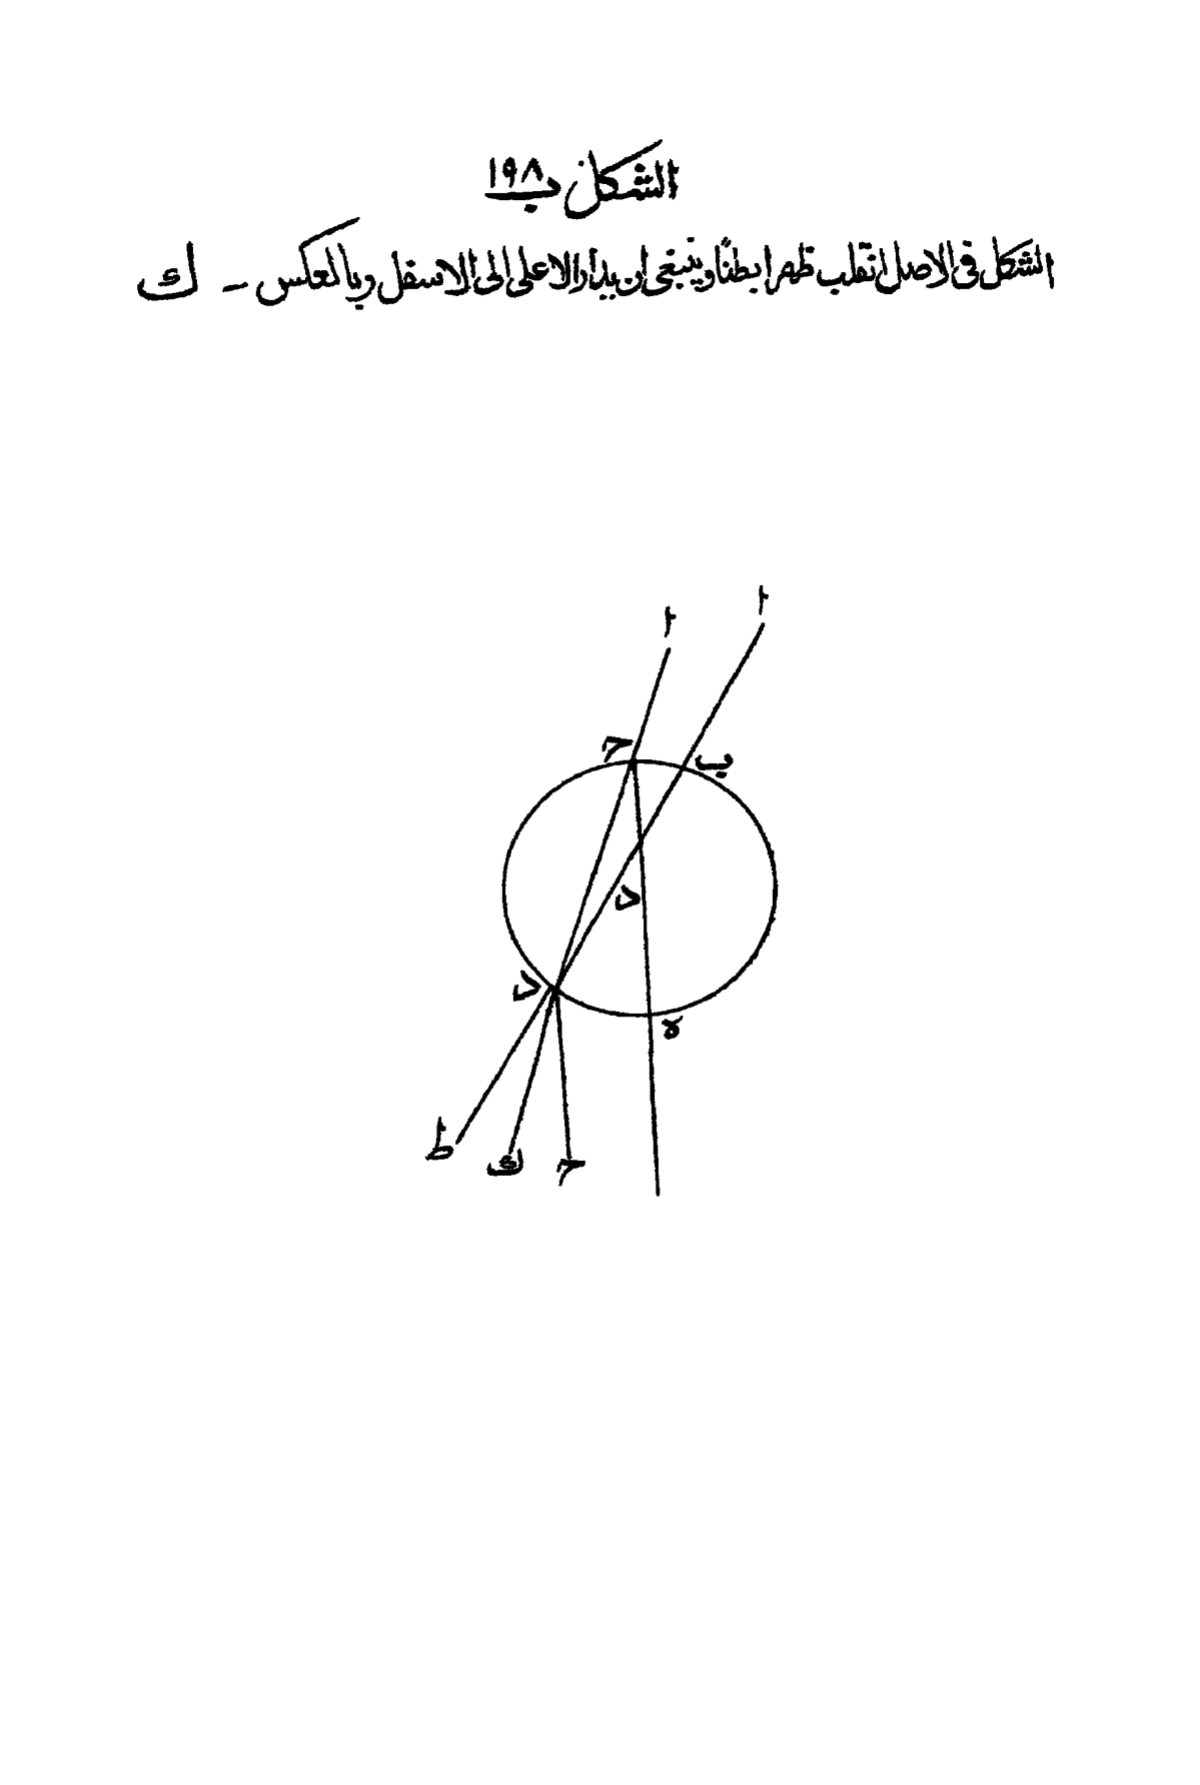 الشكل ب ١٩٨
الشكل فى الاصل انقلب ظهرا بطنًا وينبغى ان يدار الاعلى الى الاسفل وبالعكس - ك
ا
ا
ح
ب
د
د
ه
ط
ك
ح